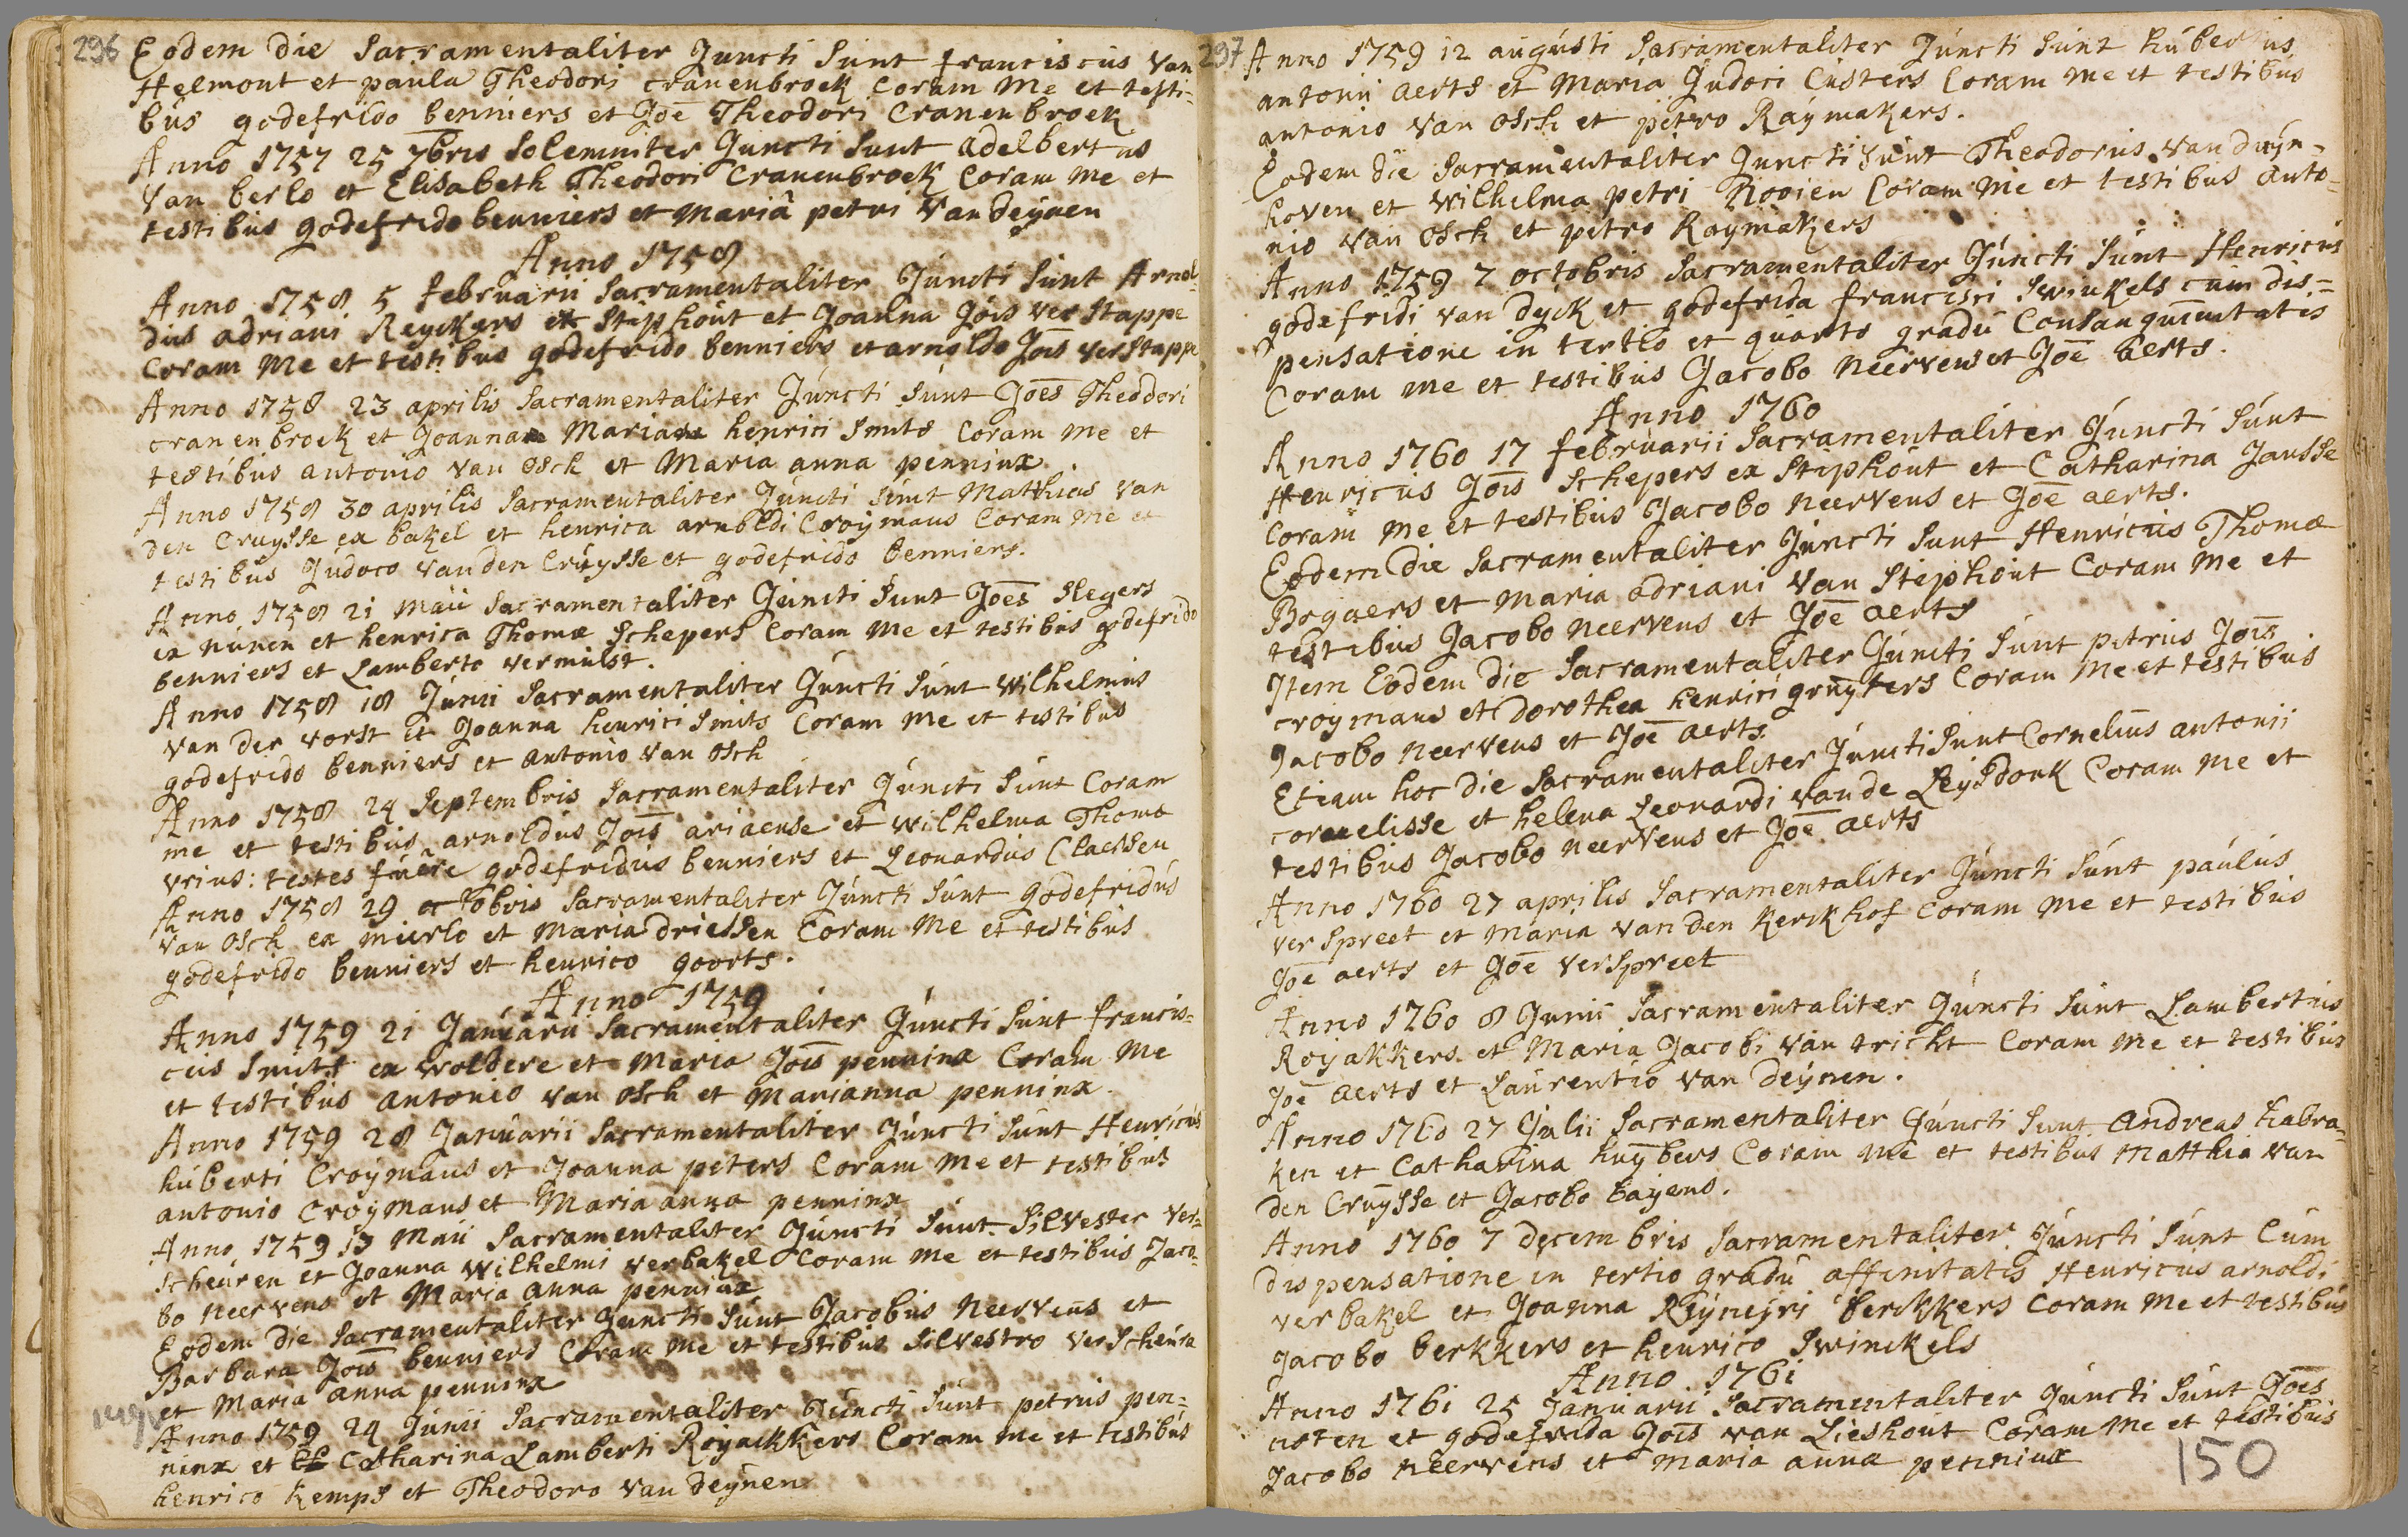 296
Eodem die Sacramentaliter Juncti Sunt franciscus van
Helmont et paula Theodori cranenbroek Coram Me et testi=
bus godefrido benniers et Joe Theodori Cranenbroek
Anno 1757 25 7bris Solemniter Juncti Sunt adelbertus
Van berlo et Elisabeth Theodori Cranenbroek Coram me et
testibus godefrido benniers et Maria petri van deynen
Anno 1758
Anno 1758 5 februarii Sacramentaliter Juncti Sunt Arnol=
dus adriani Reyckers ex Stiphout et Joanna Jois verstappe
Coram Me et testibus godefrido benniers et arnoldo Jois verstappe
Anno 1758 23 aprilis Sacramentaliter Juncti Sunt Joes Theodori
cranenbroek et Joanna Maria henrici Smits Coram me et
testibus antonio van Osch et Maria anna penninx
Anno 1758 30 aprilis Sacramentaliter Juncti Sunt Matthias van
den Cruysse ex bakel et henrica arnoldi Croymans Coram me et
testibus Judoco van den Cruysse et godefrido benniers.
Anno 1758 21 Maii Sacramentaliter Juncti Sunt Joes Slegers
ex nunen et henrica Thomæ Schepers Coram me et testibus godefrido
benniers et Lamberto vermulst.
Anno 1758 18 Junii Sacramentaliter Juncti Sunt Wilhelmus
van der vorst et Joanna henrici Smits Coram me et testibus
godefrido benniers et antonio van Osch
Anno 1758 24 Septembris Sacramentaliter Juncti Sunt Coram
me et testibus arnoldus Jois ariaense et wilhelma Thoma
vrins: testes fuere godefridus benniers et Leonardus Claessen
Anno 1758 29 octobris Sacramentaliter Juncti Sunt godefridus
van Osch ex mierlo et Maria driessen Coram Me et testibus
godefrido benniers et henrico goorts.
Anno 1759
Anno 1759 21 Januarii Sacramentaliter Juncti Sunt francis=
cus Smits ex woldere et Maria Jois penninx Coram Me
et testibus antonio van Osch et Marianna penninx.
Anno 1759 28 Januarii Sacramentaliter Juncti Sunt Henricus
huberti Croymans et Joanna peters Coram Me et testibus
antonio Croymans et Maria anna penninx
Anno 1759 13 Maii Sacramentaliter Juncti Sunt Silvester ver=
scheuren et Joanna Wilhelmi verbakel Coram me et testibus Jaco=
bo Neervens et Maria anna penninx
Eodem die Sacramentaliter Juncti Sunt Jacobus Neervens et
Barbara Jois benniers Coram Me et testibus Silvestro verscheure
et Maria anna penninx
149v
Anno 1759 24 Junii Sacramentaliter Juncti Sunt petrus pen=
ninx et Catharina Lamberti Royackkers Coram me et testibus
henrico Kemps et Theodoro van deynen
297
Anno 1759 12 augusti Sacramentaliter Juncti Sunt hubertus
antonii aerts et Maria Judoci Custers Coram me et testibus
antonio van Osch et petro Raymakers.
Eodem die Sacramentaliter Juncti Sunt Theodorus van duyn=
hoven et Wilhelma petri Rooien Coram me et testibus anto=
nio van Osch et petro Raymakers
Anno 1759 7 octobris Sacramentaliter Juncti Sunt Henricus
godefridi van dyck et godefrida francisci Swinkels cum dis=
pensatione in tertio et quarto gradu Consanguinitatis
Coram me et testibus Jacobo Neervens et Joe aerts.
Anno 1760
Anno 1760 17 februarii Sacramentaliter Juncti Sunt
Henricus Jois Schepers ex Stiphout et Catharina Jansse
Coram Me et testibus Jacobo Neervens et Joe aerts.
Eodem die Sacramentaliter Juncti Sunt Henricus Thomæ
Bogaers et Maria adriani van Stephout Coram Me et
testibus Jacobo Neervens et Joe aerts
Item Eodem die Sacramentaliter Juncti Sunt petrus Jois
croymans et dorothea henrici gruyters Coram Me et testibus
Jacobo Neervens et Joe aerts.
Etiam hoc die Sacramentaliter Juncti Sunt Cornelius antonii
cornelisse et helena Leonardi van de Leysdonk Coram Me et
testibus Jacobo Neervens et Joe aerts
Anno 1760 27 aprilis Sacramentaliter Juncti Sunt paulus
verspreet et Maria van den Kerckhof Coram Me et testibus
Joe aerts et Joe verspreet
Anno 1760 8 Junii Sacramentaliter Juncti Sunt Lambertus
Royakkers et Maria Jacobi van tricht Coram me et testibus
Joe aerts et Laurentio van deynen.
Anno 1760 27 Julii Sacramentaliter Juncti Sunt Andreas habra=
ken et Catharina huybers Coram me et testibus Matthia van
den Cruysse et Jacobo bayens.
Anno 1760 7 decembris Sacramentaliter Juncti Sunt Cum
dispensatione in tertio gradu affinitatis Henricus arnoldi
verbakel et Joanna Reyneyri berkkers Coram me et testibus
Jacobo berkkers et henrico Swinckels
Anno 1761
Anno 1761 25 Januarii Sacramentaliter Juncti Sunt Joes
noten et godefrida Jois van Lieshout Coram Me et testibus
Jacobo Neervens et Maria anna penninx
150